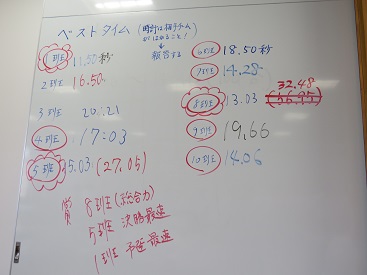 ベストタイム (時計は相手チーム
がはかること!
→報告する
1班 11.50秒
2班 16.50
3班 20.21
4班 17:03
5班 25.03 (27.05)
6班 18.50秒
7班 14.28
8班 13.03
32.48
9班 19.66
10班 14.06
賞 8班(総合力)
5班 決勝最速
1班 予選最速